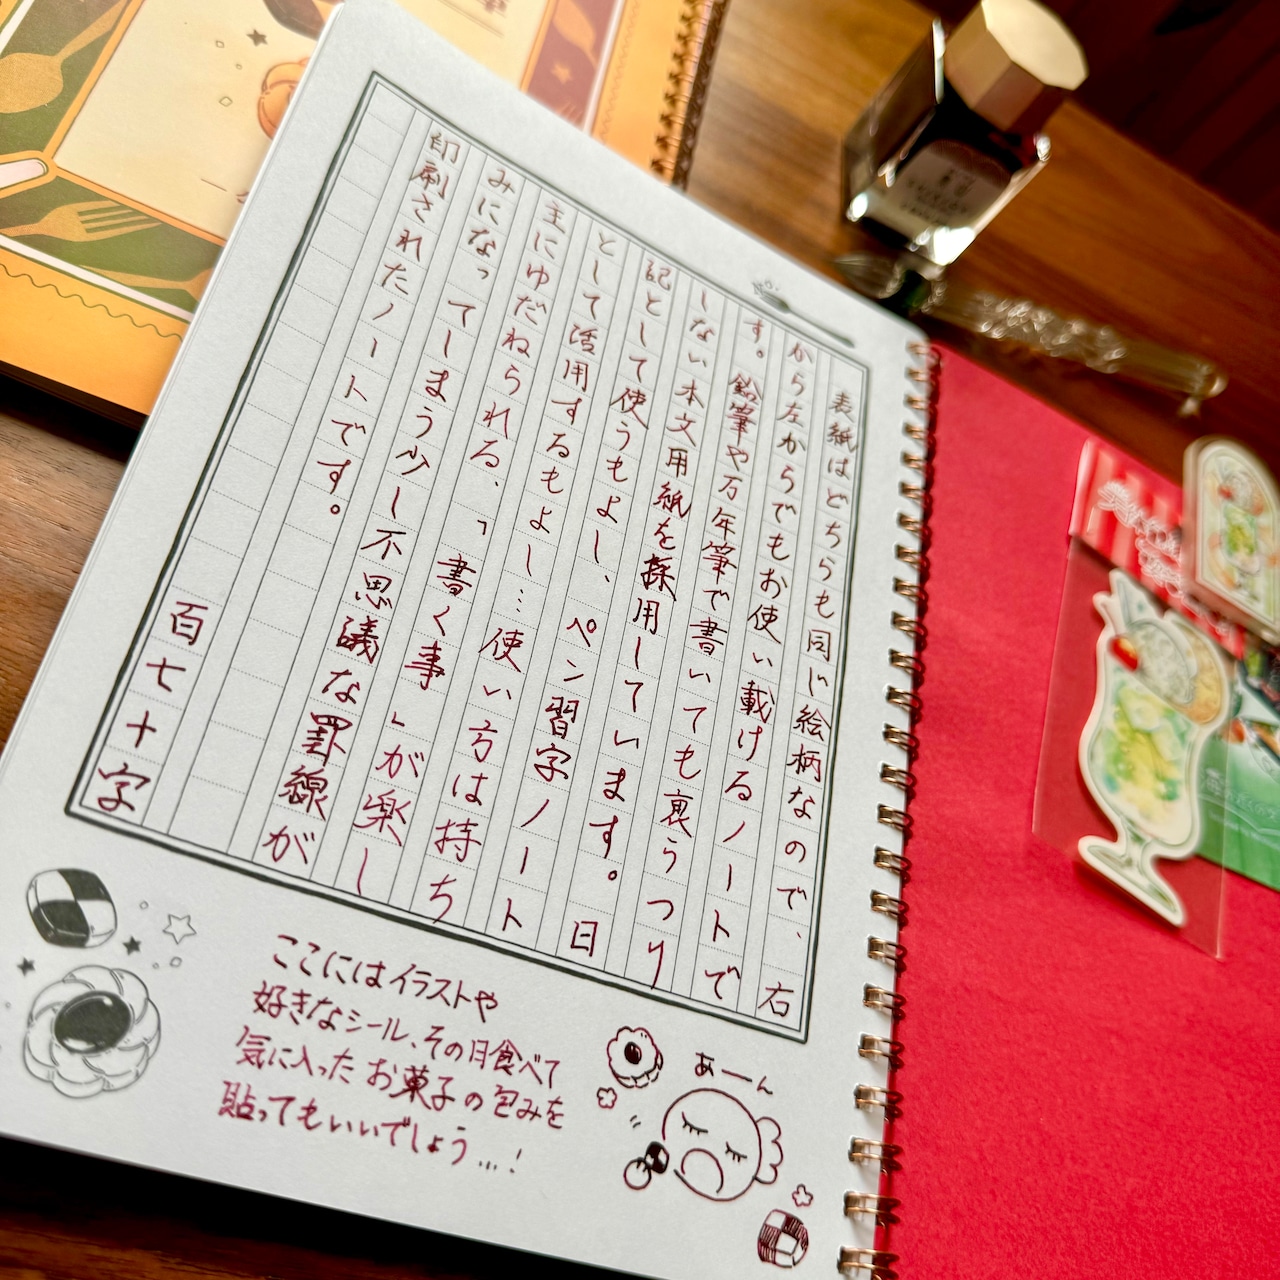 No.
表紙はどちらも同じ絵柄なので、右
から左からでもお使い載けるノートで
す。鉛筆や万年筆で書いても裏うつり
しない本文用紙を採用しています。日
記として使うもよし、ペン習字ノート
として活用するもよし…使い方は持ち
主にゆだねられる、「書く事」が楽し
みになってしまう少し不思議な罫線が
印刷されたノートです。
百七十字
ここにはイラストや
好きなシール、その日食べて
気に入ったお菓子の包みを
貼ってもいいでしょう…!
あーん